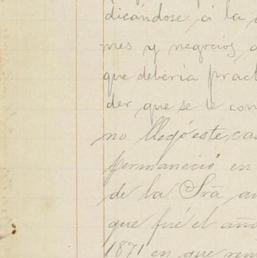 dicándose, á la
mes y negocios,
que debería pract
der que se le con
no llegó este, ca
permaneció en
de la Srā
que fué el año
1871 en que rem